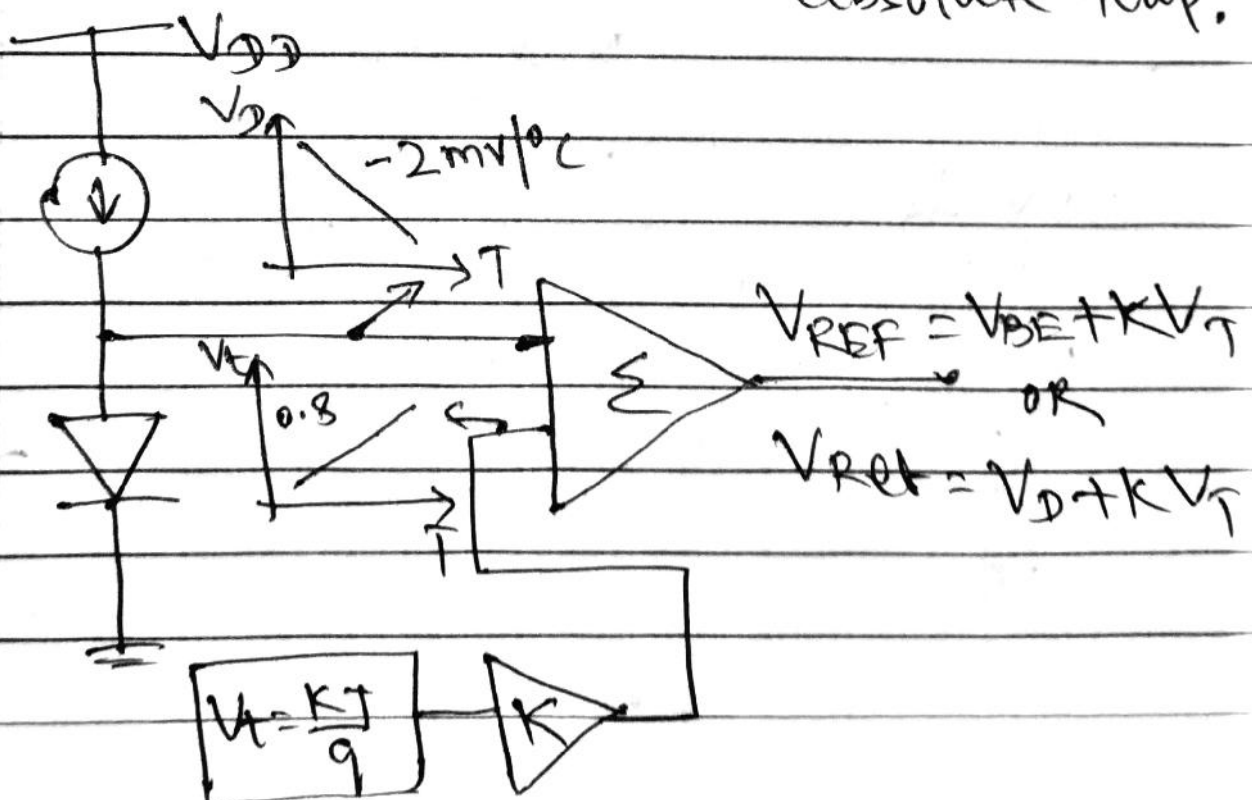 absolute Temp.
VDD
VD
-2mv/°C
T
VREF = VBE + KVT
Vt
0.8
Σ
OR
VRef = VD + KVT
T
Vt = KT/q
K